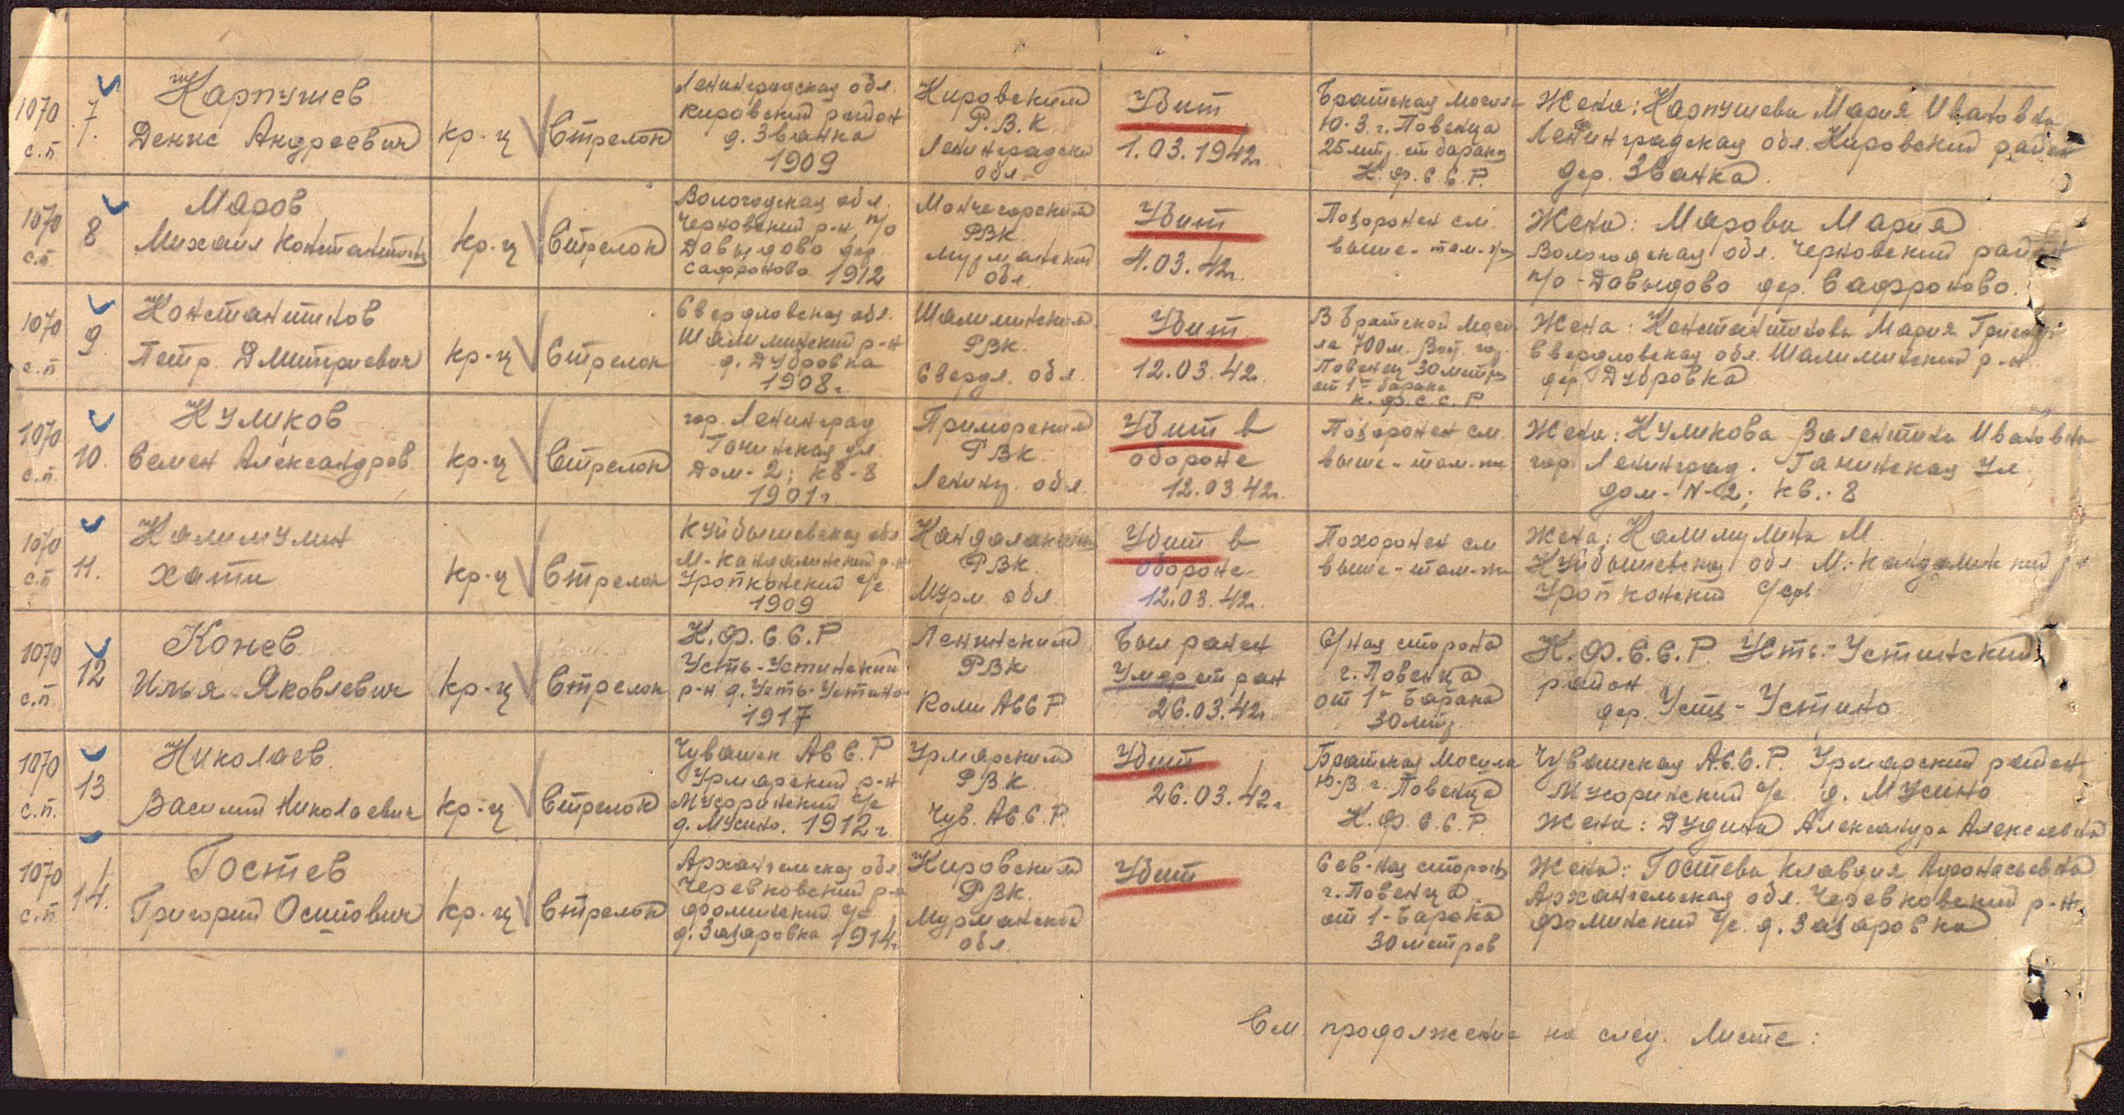 1070 с.п
7.
Карпушев
Денис Андреевич
кр-ц
Стрелок
Ленинградская обл.
Кировский район
д. Званка
1909
Кировским
Р.В.К
Ленинградско
обл.
Убит
1.03.1942г.
Братская могила
Ю.З. г. Повенца
25 мтр. от барака
К.Ф.С.С.Р.
Жена: Карпушева Мария Ивановна
Ленинградская обл. Кировский район
дер. Званка.
1070 с.п.
8
Маров
Михаил Константинов
кр-ц
Стрелок
Вологодская обл.
Черновский р-н, п/о
Давыдово дер.
Сафроново 1912
Мончегорским
РВК
Мурманской
обл.
Убит
4.03.42г.
Похоронен см.
выше-там-же
Жена: Марова Мария
Вологодская обл. Черновский район
п/о-Давыдово дер. Сафроново.
1070 с.п
9.
Константинов
Петр Дмитриевич
кр-ц
Стрелок
Свердловская обл.
Шалиминский р-н
д. Дубровка
1908г
Шалиминским
РВК.
Свердл. обл.
Убит
12.03.42.
В братской моги
ле 700м. Вост. гор.
Повенец 30 метров
от 1го барака
К.Ф.С.С.Р
Жена: Константинова Мария Григорь
Свердловская обл. Шалиминский р-н
дер. Дубровка
1070 с.п.
10.
Куликов
Семен Александров
кр-ц
Стрелок
гор. Ленинград
Гачинская ул.
Дом-2; кв-8
1901г
Приморским
РВК.
Ленинг. обл.
Убит в
обороне
12.03.42г.
Похоронен см.
выше-там-же
Жена: Куликова Валентина Ивановна
гор. Ленинград. Гачинская ул.
дом-N-2; кв.-8
1070 с.п
11.
Калимулин
Хати
кр-ц
Стрелок
Куйбышевская обл
М-Кандалинский р-н
Уропконский с/с
1909
Кандалакшским
РВК.
Мурм. обл.
Убит в
обороне
12.03.42г.
Похоронен см
выше-там-же
Жена: Калимулина М.
Куйбышевская обл М.-Кандалинский р-н
Уропконский с/сов.
1070 с.п
12
Конев
Илья Яковлевич
кр-ц
Стрелок
К.Ф.С.С.Р
Усть-Устинский
р-н д. Усть-Устино
1917
Ленинским
РВК
Коми АССР
Был ранен
Умер от ран
26.03.42г.
С/ная сторона
г. Повенца
от 1го Барака
30 мтр.
К.Ф.С.С.Р. Усть-Устинский
район
дер. Усть-Устино
1070 с.п.
13
Николаев
Василий Николаевич
кр-ц
Стрелок
Чувашск АССР
Урмарский р-н
Мусоринский с/с
д. Мусино. 1912г
Урмарским
РВК.
Чув. АССР.
Убит
26.03.42г.
Братская могила
Ю.В. г. Повенца
К.Ф.С.С.Р
Чувашская АССР. Урмарский район
Мусоринский с/с. д. Мусино
Жена: Дудина Александра Алексеевна
1070 с.п
14.
Гостев
Григорий Осипович
кр-ц
Стрелок
Архангельская обл
Черевковский р-н
Фоминский с/с
д. Захаровка 1914г
Кировским
РВК.
Мурманской
обл.
Убит
Сев-ная сторона
г. Повенца
от 1-Барака
30 метров
Жена: Гостева Клавдия Афонасьевна
Архангельская обл. Черевковский р-н
Фоминский с/с. д. Захаровка
См. продолжение на след. листе: